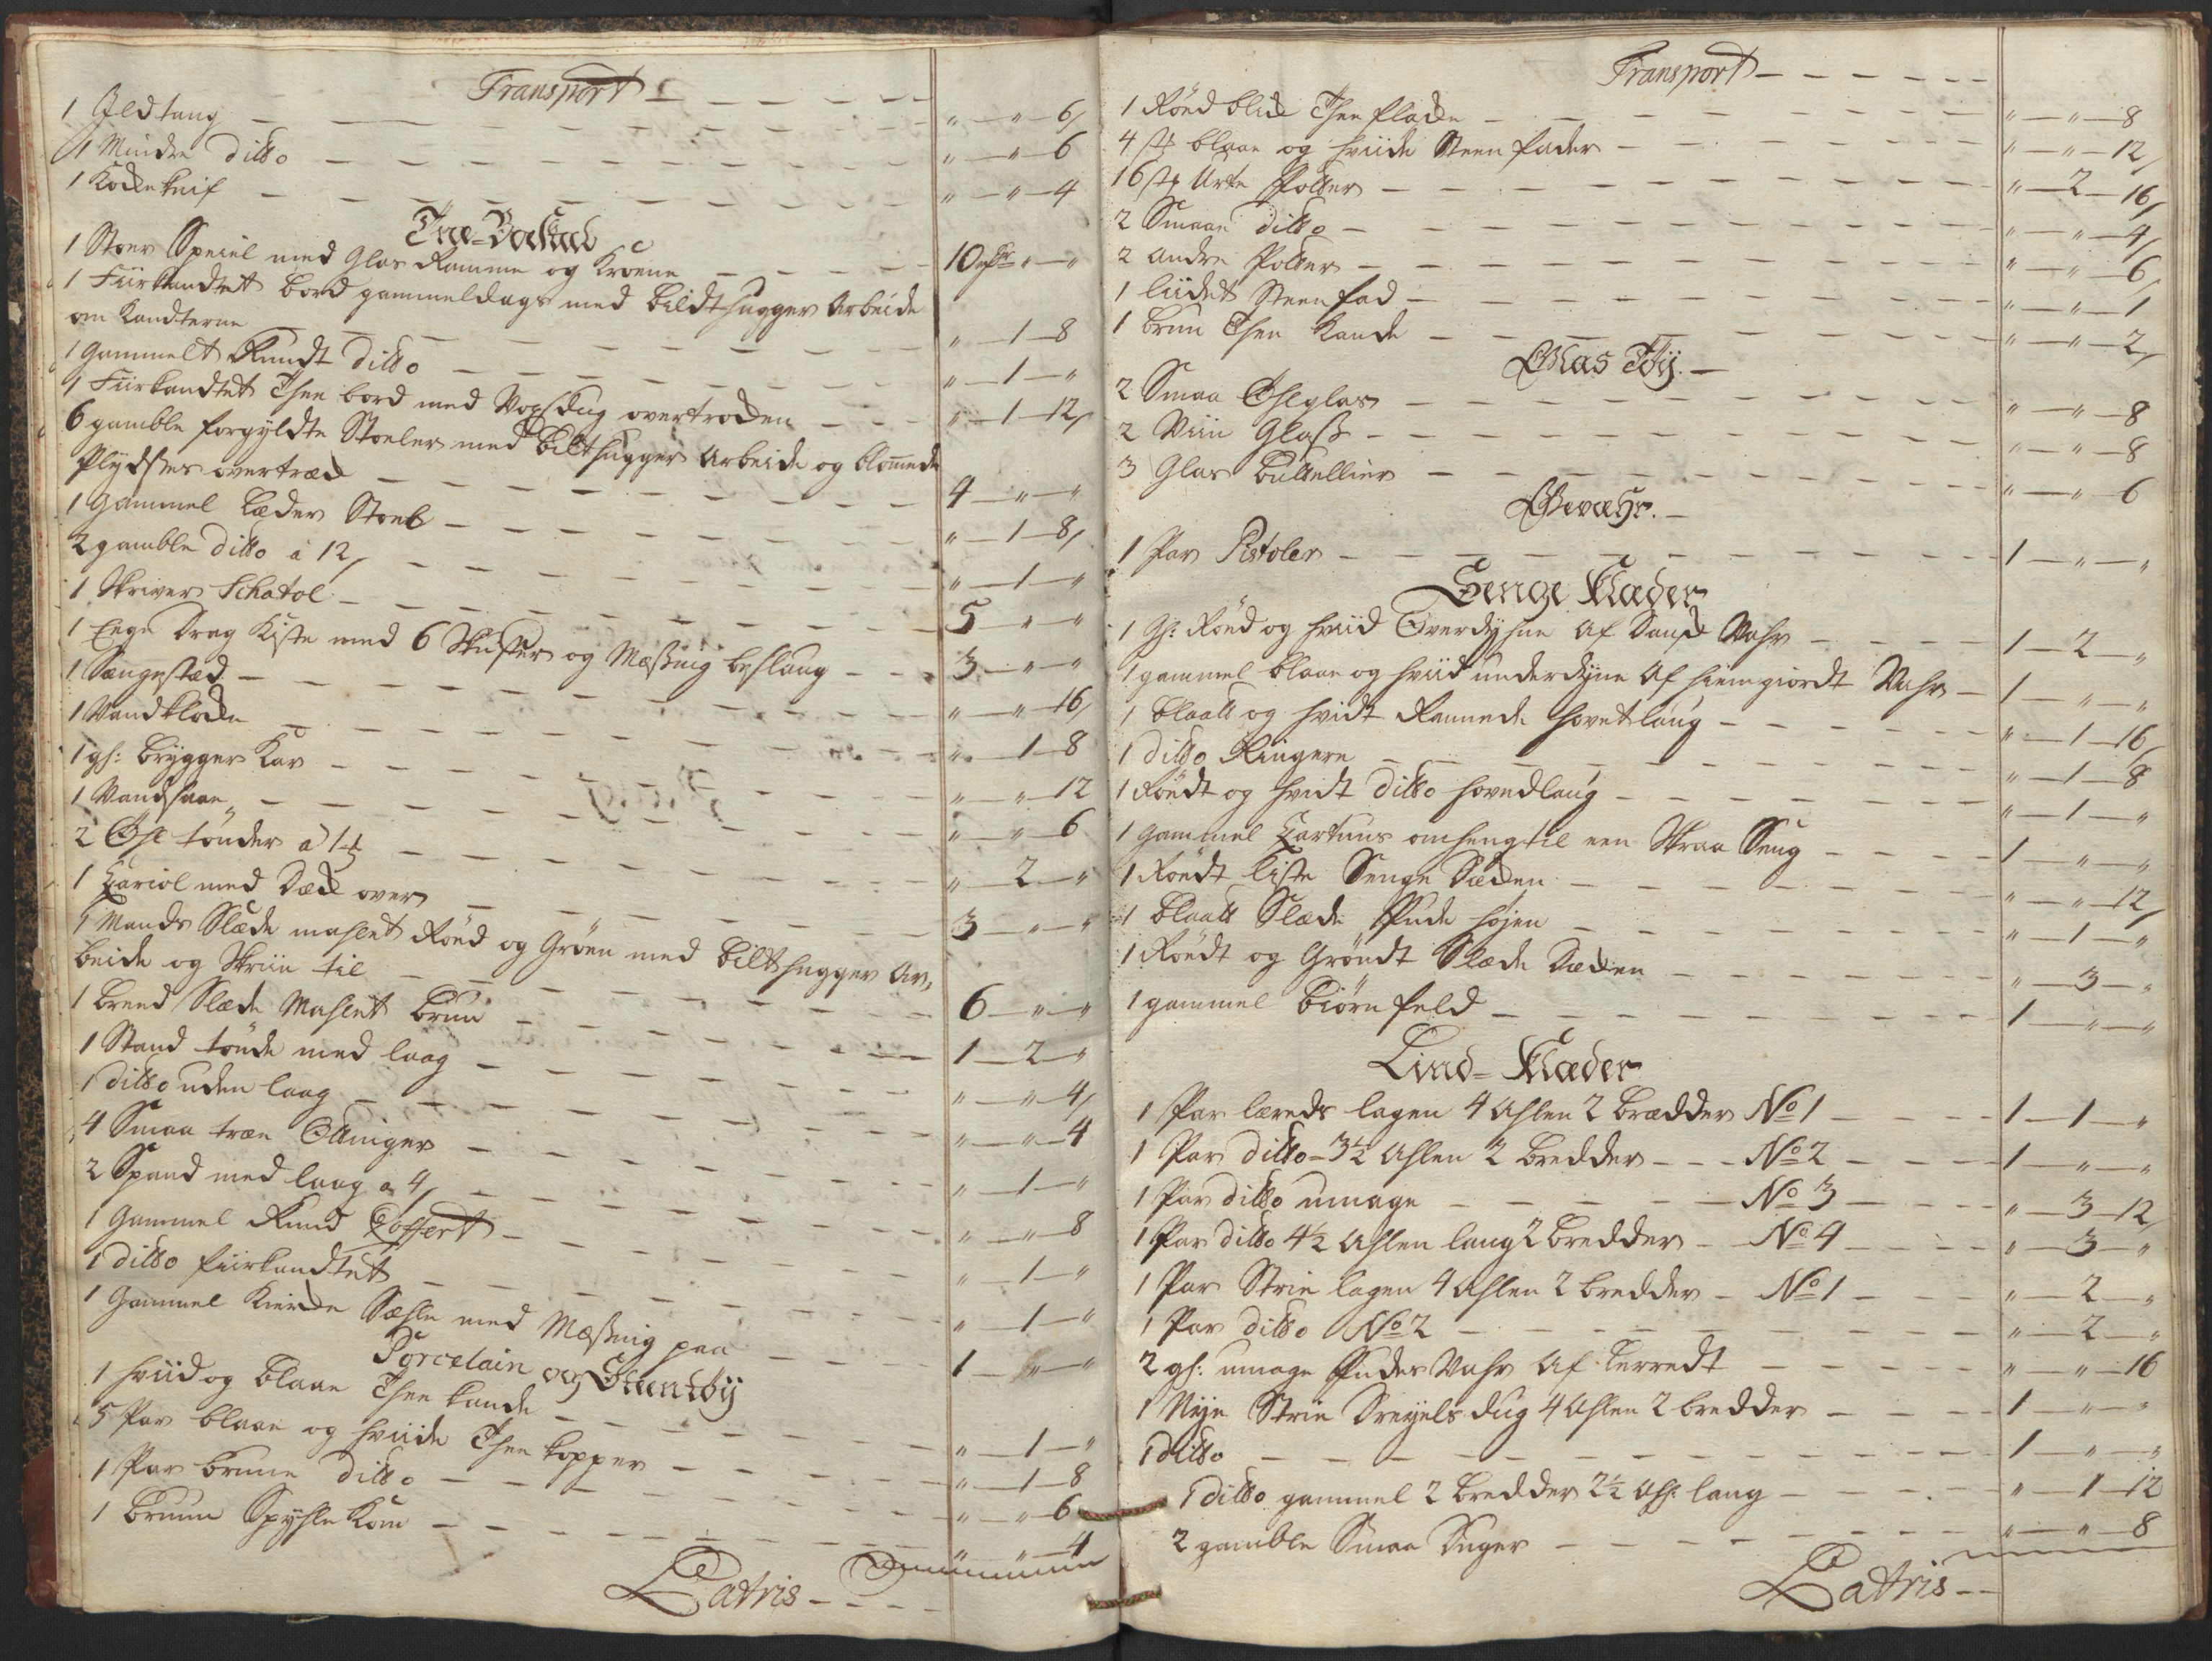 Transport
1 Ildtang " — " — 6
1 Mindre ditto " — " — 6
1 Kockeknif " — " — 4
Træ-Bohave
1 Stoer Speiel med Glas Ramme og Kroene 10 rdr " — "
1 Fiirkandtet bord gammeldags med bildthugger Arbeide
om Kandterne " — 1 — 8
1 gammelt Rundt ditto " — 1 — "
1 Fiirkandtet Thee bord med Voxdug overtrocken " — 1 — 12
6 gamble forgyldte Stoeler med bilthugger Arbeide og blomede
Plydses overtræck 4 — " — "
1 gammel Læder Stoel " — 1 — 8
2 gamble ditto a 12 " — 1 — "
1 Skriver Schatol 5 — " — "
1 Eege Drag Kiste med 6 Skuffer og Messing beslaug 3 — " — "
1 Sængestæd " — " — 16
1 Vandklocke " — 1 — 8
1 gl: brygger Kar " — " — 12
1 Vandsaae " — " — 6
2 Øhl tønder a 1 " — 2 — "
1 Cariol med Deck over 3 — " — "
1 Mands Slæde mahlet Røed og Grøen med bilthugger Ar,
beide og Skriin til 6 — " — "
1 breed Slæde Mahlet bruun 1 — 2 — "
1 Stand tønde med laag " — " — 4
1 ditto uden laag " — " — 4
4 Smaa træe Ottinger " — 1 — "
2 Spand med laag a 4 " — " — 8
1 Gammel Rund Coffert " — 1 — "
1 ditto fiirkandtet " — 1 — "
1 Gammel Kierre Sæhle med Messing paa 1 — " — "
Porcelain og Steentøÿ
1 hviid og blaae Thee kande " — 1 — "
5 Par blaae og hviide Thee kopper " — 1 — 8
1 Par brune ditto " — " — 6
1 bruun Spyhle Kom " — " — 4
Latris
Transport
1 Røed blick Thee flacke " — " — 8
4 st blaae og hviide Steen fader " — " — 12
16 st Urte Potter " — 2 — 16
2 Smaae ditto " — " — 4
2 andre Potter " — " — 6
1 liidet Steen fad " — " — 1
1 brun Thee Kande " — " — 2
Glas Tøÿ.
2 Smaa Ohlglas " — " — 8
2 Viin Glass " — " — 8
3 Glas buttellier " — " — 6
Gevæhr.
1 Par Pistoler 1 — " — "
Senge Klæder
1 Gl: Røed og hviid Overdyhne Af Dansk Vahr 1 — 2 — "
1 gammel blaae og hviid underdyne Af hiemgiordt Vahr 1 — " — "
1 blaatt og hvidt Rannede hovetlaug " — 1 — 16
1 ditto Ringere " — 1 — 8
1 Røedt og hvidt ditto hovedlaug " — 1 — "
1 gammel Cartuns omheng til een Skraa Seng 1 — " — "
1 Røedt liste Senge Decken " — " — 12
1 blaatt Slæde Pude højen " — 1 — "
1 Røedt og Grøndt Slæde Decken " — 3 — "
1 gammel biørnfeld 1 — " — "
Lind-Klæder
1 Par lerreds lagen 4 Ahlen 2 bredder No 1 1 — 1 — "
1 Par ditto 3½ Ahlen 2 bredder No 2 1 — " — "
1 Par ditto umage No 3 " — 3 — 12
1 Par ditto 4½ Ahlen lang 2 bredder No 4 " — 3 — "
1 Par Strie lagen 4 Ahlen 2 bredder No 1 " — 2 — "
1 Par ditto No 2 " — 2 — "
2 gl: umage Puder Vahr Af Lerredt " — " — 16
1 Nye Strie Dreyels dug 4 Ahlen 2 bredder 1 — " — "
1 ditto 1 — " — "
1 ditto gammel 2 bredder 2½ Ahl: lang " — 1 — 12
2 gamble Smaa Duger " — " — 8
Latris